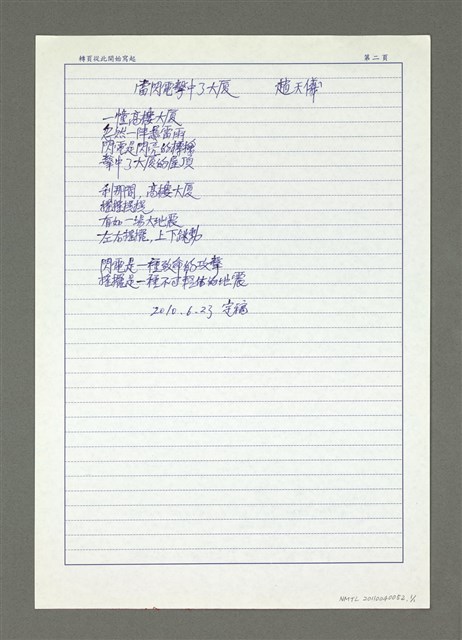 轉頁從此開始寫起
第二頁
當閃電擊中了大厦 趙天儀
一幢高樓大厦
忽然一陣暴雷雨
閃電是閃亮的
擊中了大厦的屋頂
刹那間，高樓大厦
搖搖擺擺
有如一場大地震
左右搖擺，上下跳動
閃電是一種致命的攻擊
搖擺是一種不可輕估的地震
2010.6.23 定稿
NMTL 20110240052 1/1